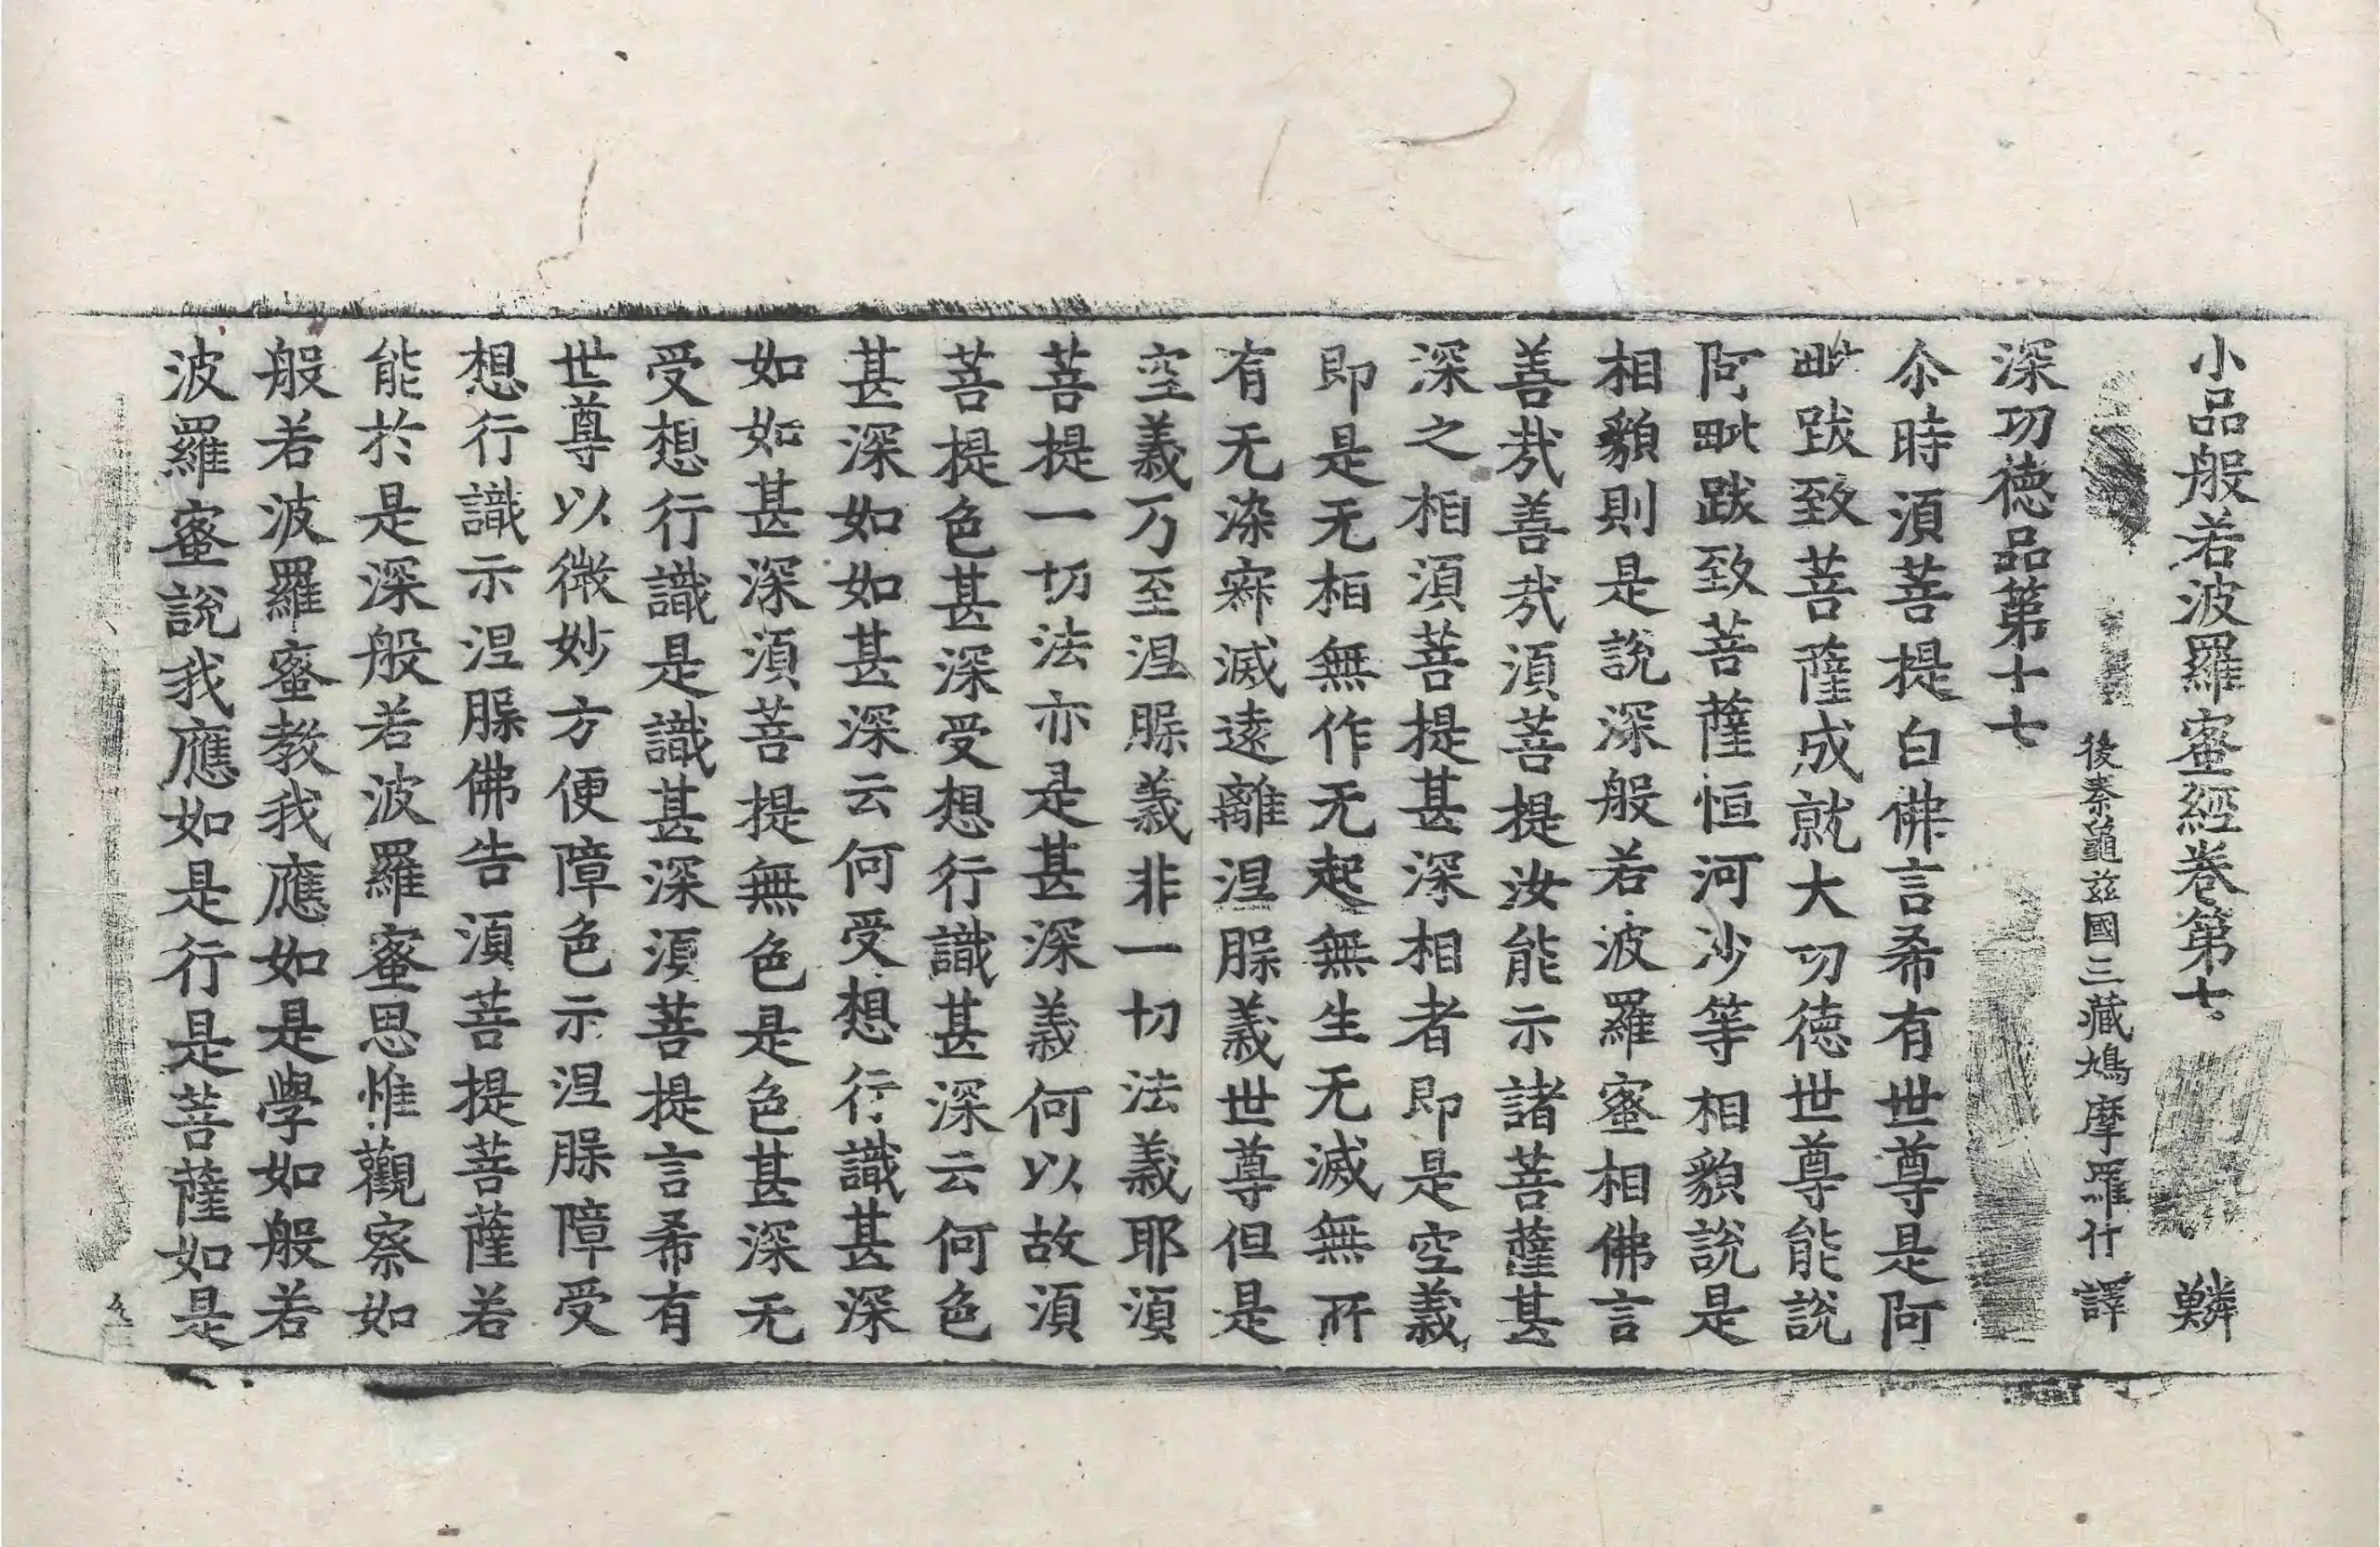 小品般若波羅蜜經卷第七 鱗
後秦龜茲國三藏鳩摩羅什 譯
深功德品第十七
尒時湏菩提白佛言希有世尊是阿
毗跋致菩薩成就大功德世尊能說
阿毗跋致菩薩恒河沙等相貌說是
相貌則是說深般若波羅蜜相佛言
善㢤善㢤湏菩提汝能示諸菩薩甚
深之相湏菩提甚深相者即是空義
即是无相無作无起無生无滅無所
有无染寂滅遠離涅槃義世尊但是
空義乃至涅槃義非一切法義耶湏
菩提一切法亦是甚深義何以故湏
菩提色甚深受想行識甚深云何色
甚深如如甚深云何受想行識甚深
如如甚深湏菩提無色是色甚深无
受想行識是識甚深湏菩提言希有
世尊以微妙方便障色示涅槃障受
想行識示涅槃佛告湏菩提菩薩若
能於是深般若波羅蜜思惟觀察如
般若波羅蜜教我應如是學如般若
波羅蜜說我應如是行是菩薩如是